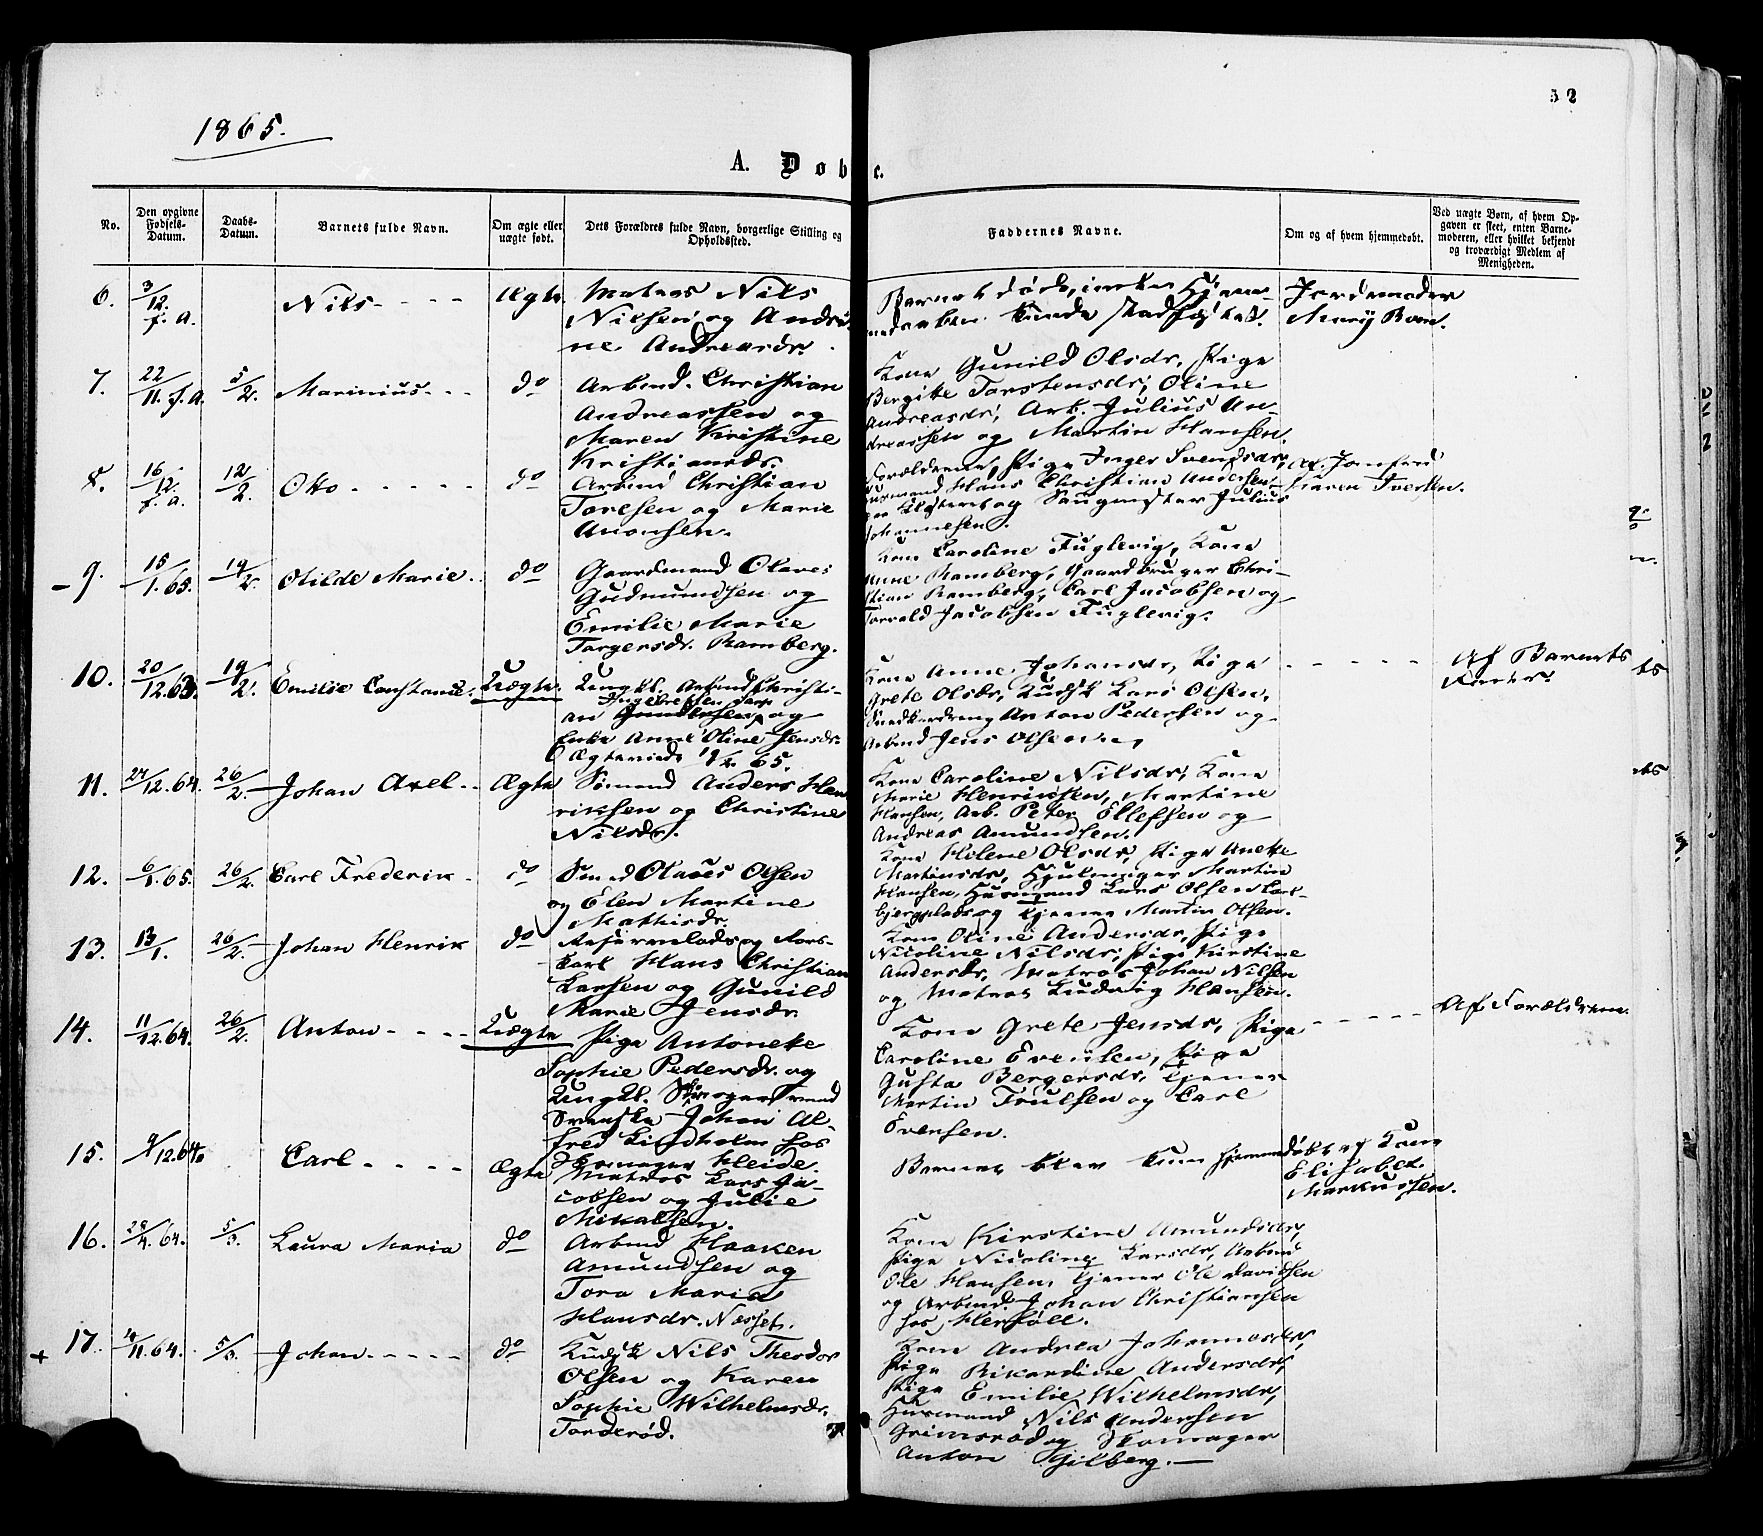 52
1865.
A. Døbte.
No.
Den opgivne Fødsels-Datum.
Daabs-Datum.
Barnets fulde Navn.
Om ægte eller uægte født.
Dets Forældres fulde Navn, borgerlige Stilling og Opholdssted.
Faddernes Navne.
Om og af hvem hjemmedøbt.
Ved uægte Børn, af hvem Opgaven er skeet, enten Barnemoderen, eller hvilket bekjendt og troværdigt Medlem af Menigheden.
6. 3/12. f. A. Nils - - - - Ægte. Matros Nils
Nilsen og Andri-
ne Andreasdr.
Barnet døde, inden Hjemme-
daaben kunde stadfæstes.
Jordemoder
Mary Boen.
7. 22/11. f. A. 5/2. Marinius - - - do Arbmd. Christian
Andreassen og
Maren Kristine
Kristiansdr.
Kone Gunild Olsdr, Pige
Bergite Torstensdr, Oline
Andreasdr, Arb. Julius An-
dreassen og Martin Hansen.
8. 16/12 f. a. 12/2. Otto - - - - - do Arbmd Christian
Toresen og Marie
Aronsen.
Forældrene, Pige Inger Svendsdr,
Husmand Hans Christian Andersen
og Saugmester Julius
Johannesen.
Af Jomfru
Karen Iversen.
9. 15/1. 65. 19/2. Otilde Marie. do Gaardmand Olaves
Gudmundsen og
Emilie Marie
Torgersdr. Ramberg.
Kone Caroline Fuglevig, Kone
Anne Ramberg, Gaardbruger Chri-
stian Ramberg, Carl Jacobsen og
Torvald Jacobsen Fuglevig.
10. 20/12. 63. 19/2. Emilie Constance. Uægte. Ungkl. Arbmd Christi-
an Ingebretsen og
Enke Anne Oline Jensdr.
Ægteviede 19/2 65.
Kone Anne Johansdr, Pige
Grete Olsdr, Kudsk Lars Olsen,
Anton Pedersen og
Arbmd Jens Olsen.
- - - - - -
Af Barnets
11. 24/12. 64. 26/2. Johan Axel. - Ægte Sømand Anders Hen-
riksen og Christine
Nilsdr.
Kone Caroline Nilsdr, Kone
Marie Henriksen, Martine
Hansen, Arb. Peter Ellefsen og
Andreas Amundsen.
12. 6/1. 65. 26/2. Carl Frederik - do Sømd Olaves Olsen
og Elen Martine
Mathisdr.
Kone Helene Olsdr, Pige Anette
Martinsdr, Hjulmager Martin
Hansen, Husmand Lars Olsen
og Tjener Martin Olsen.
13. 13/1. 26/2. Johan Henrik do
Hans Christian
Larsen og Gunild
Marie Jensdr.
Kone Oline Andersdr, Pige
Nicoline Nilsdr, Pige Kirstine
Andersdr, Matros Johan Nilsen
og Matros Ludvig Hansen.
14. 11/12. 64. 26/2. Anton - - - - Uægte Pige Antonette
Sophie Pedersdr. og
Ungkl. Skomagersvend
Svenske Johan Al-
fred Lindholm hos
Skomager Heide.
Kone Grete Jensdr, Pige
Caroline Evensen, Pige
Gusta Bergersdr, Tjener
Martin Trulsen og Carl
Evensen.
- - - - - -
Af Forældrene.
15. 9/12. 64. Carl - - - - Ægte Matros Lars Ja-
cobsen og Julie
Mikalsen.
Barnet blev kun hjemmedøbt af Kone
Elisabet
Markussen.
16. 28/4. 64. 5/3. Laura Maria do Arbmd Haaken
Amundsen og
Tora Maria
Hansdr. Næsset.
Kone Kirstine Amundsdr,
Pige Nicoline Larsdr, Arbmd
Ole Hansen, Tjener Ole Davidsen
og Arbmd. Johan Christiansen
hos Herføll.
17. 4/11. 64. 5/3. Johan - - - - - do Kudsk Nils Theodor
Olsen og Karen
Sophie Wilhelmsdr.
Torderød.
Kone Andrea Johannesdr,
Pige Rikardine Andersdr,
Pige Emilie Wilhelmsdr,
Husmand Nils Andersen
Grimsrød og Skomager
Anton Kjilberg. —